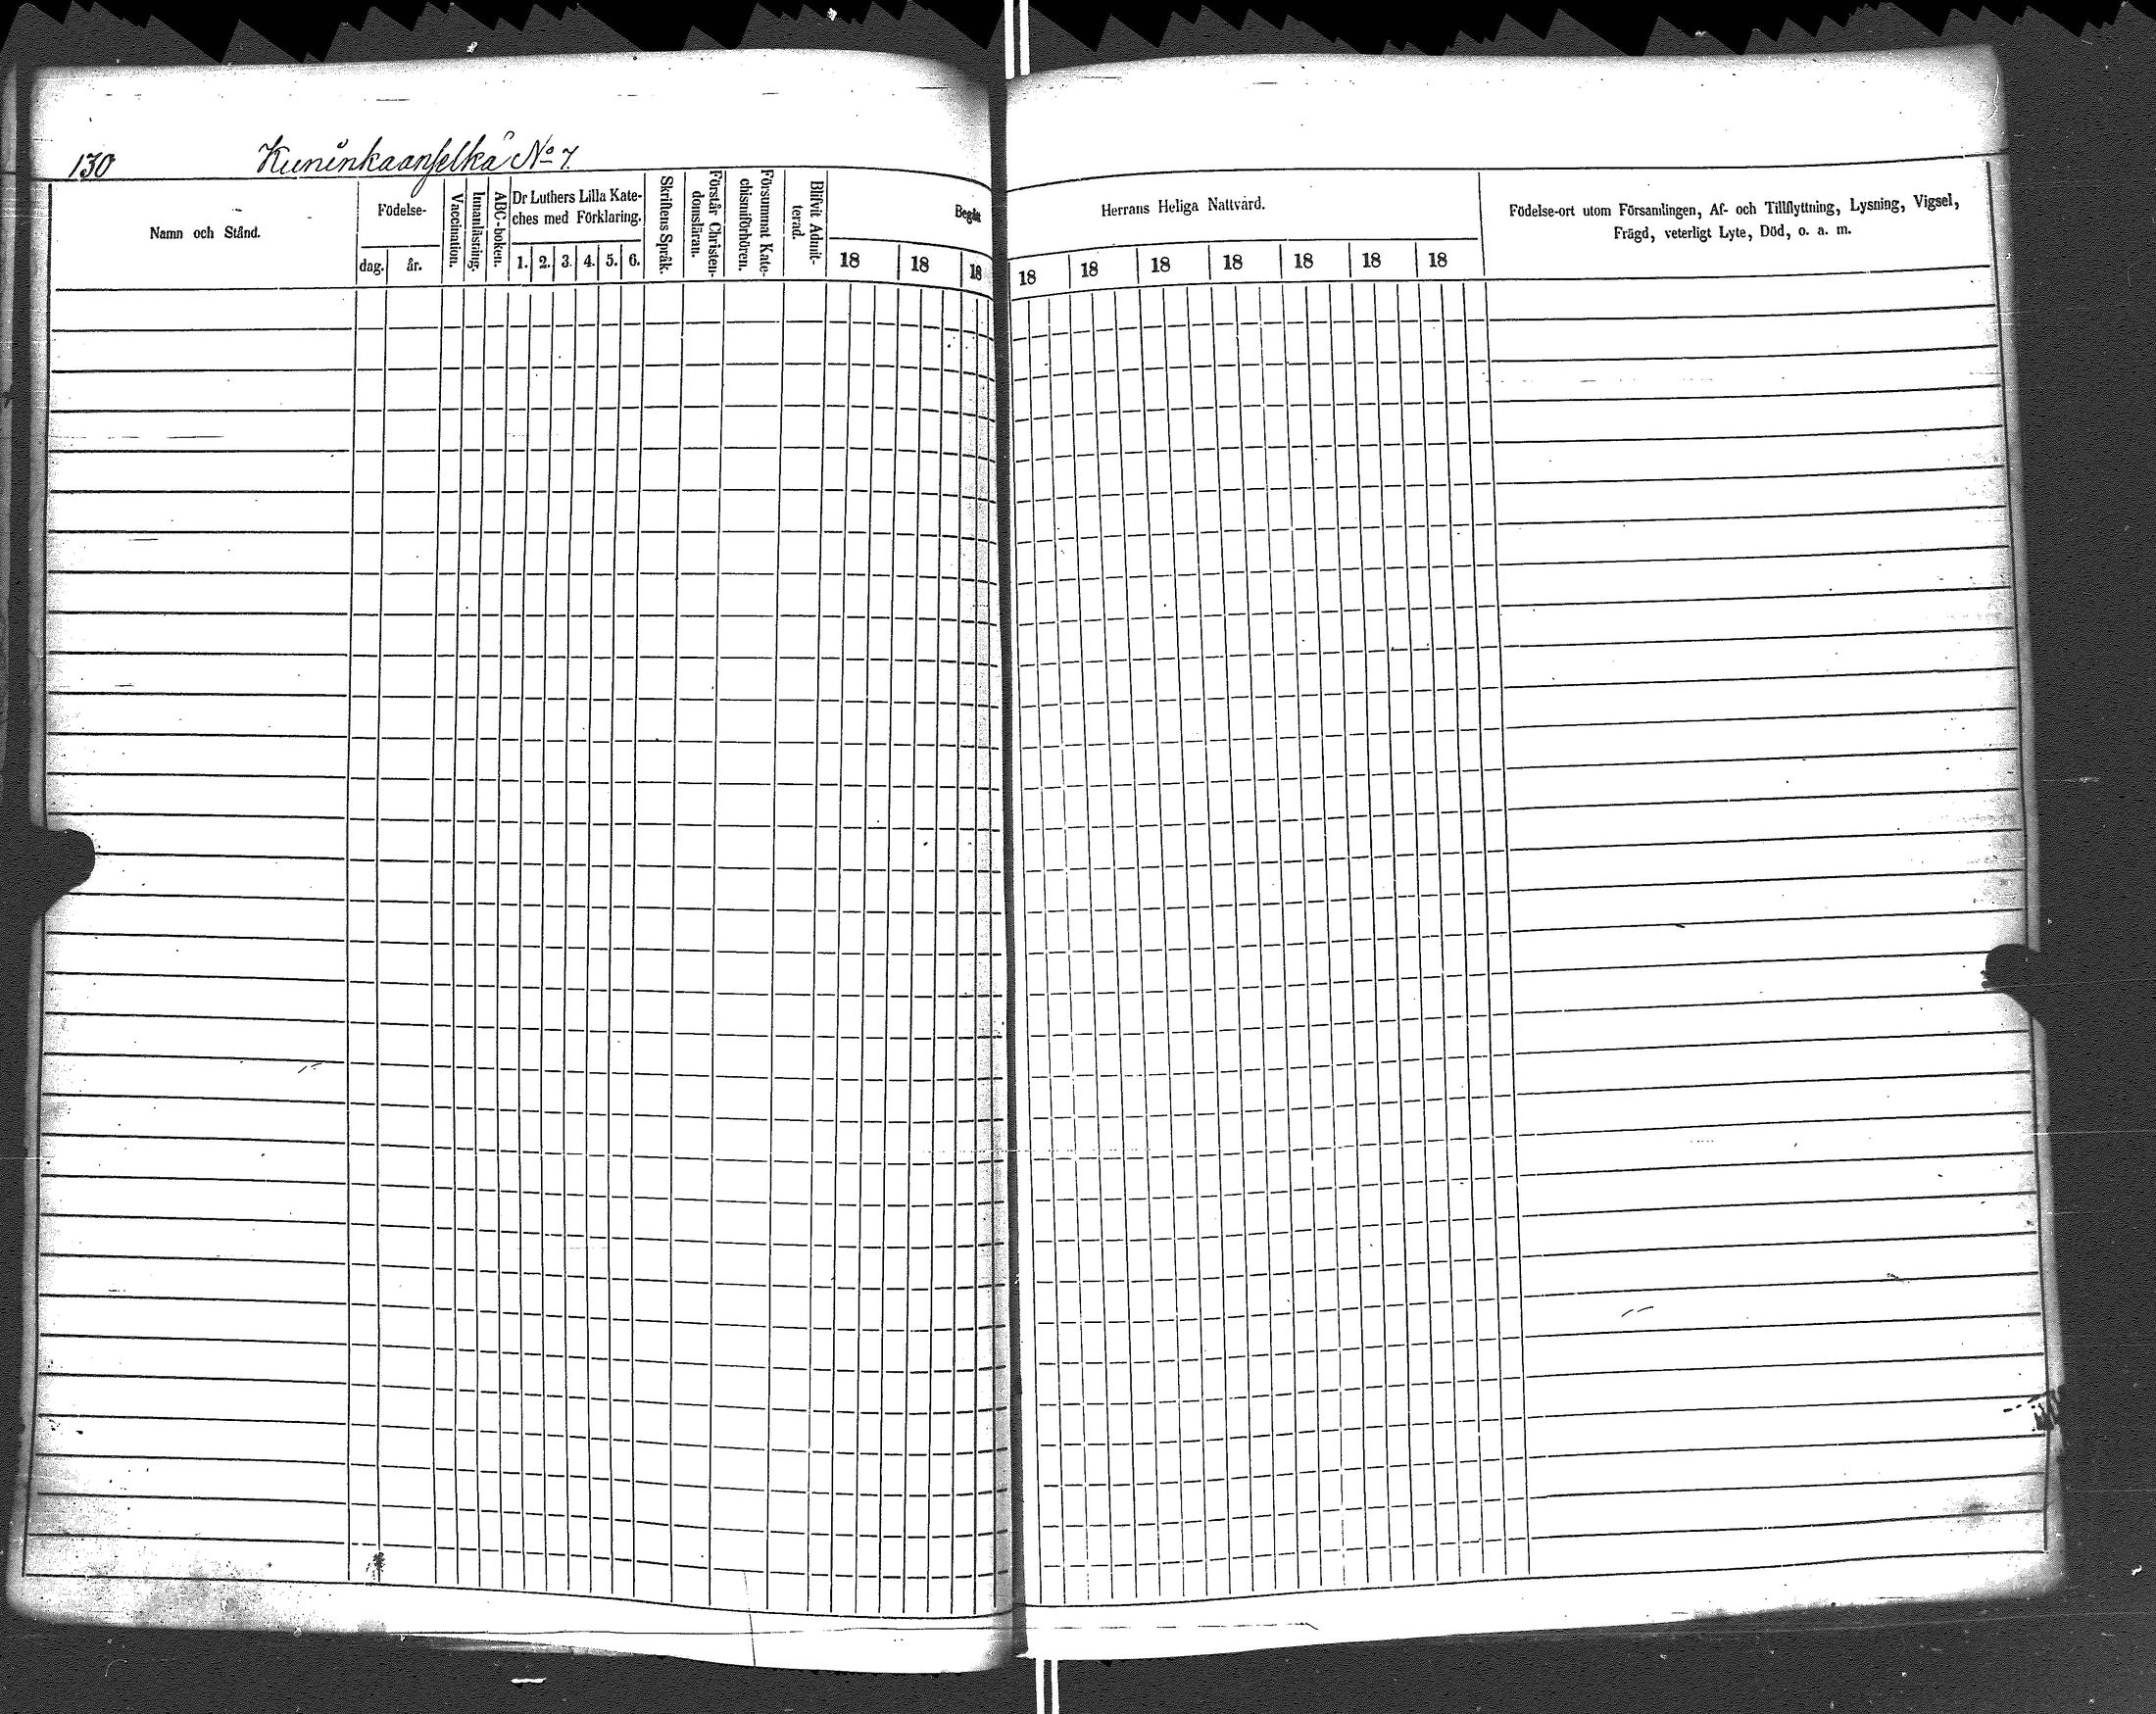 130 Kuninkaanselkä No 7.
Namn och Stånd.
Födelse-
dag.
år.
Vaccination.
Innanläsning.
ABC-boken.
Dr Luthers Lilla Kate-
ches med Förklaring.
1. 2. 3. 4. 5. 6.
Skriftens Språk.
Förstår Christen-
domsläran.
Försummat Kate-
chismiförhören.
Blifvit Admit-
terad.
Begått
18 18 18
Herrans Heliga Nattvard.
18 18 18 18 18 18 18
Födelse-ort utom Församlingen, Af- och Tillflyttning, Lysning, Vigsel,
Frägd, veterligt Lyte, Död, o. a. m.